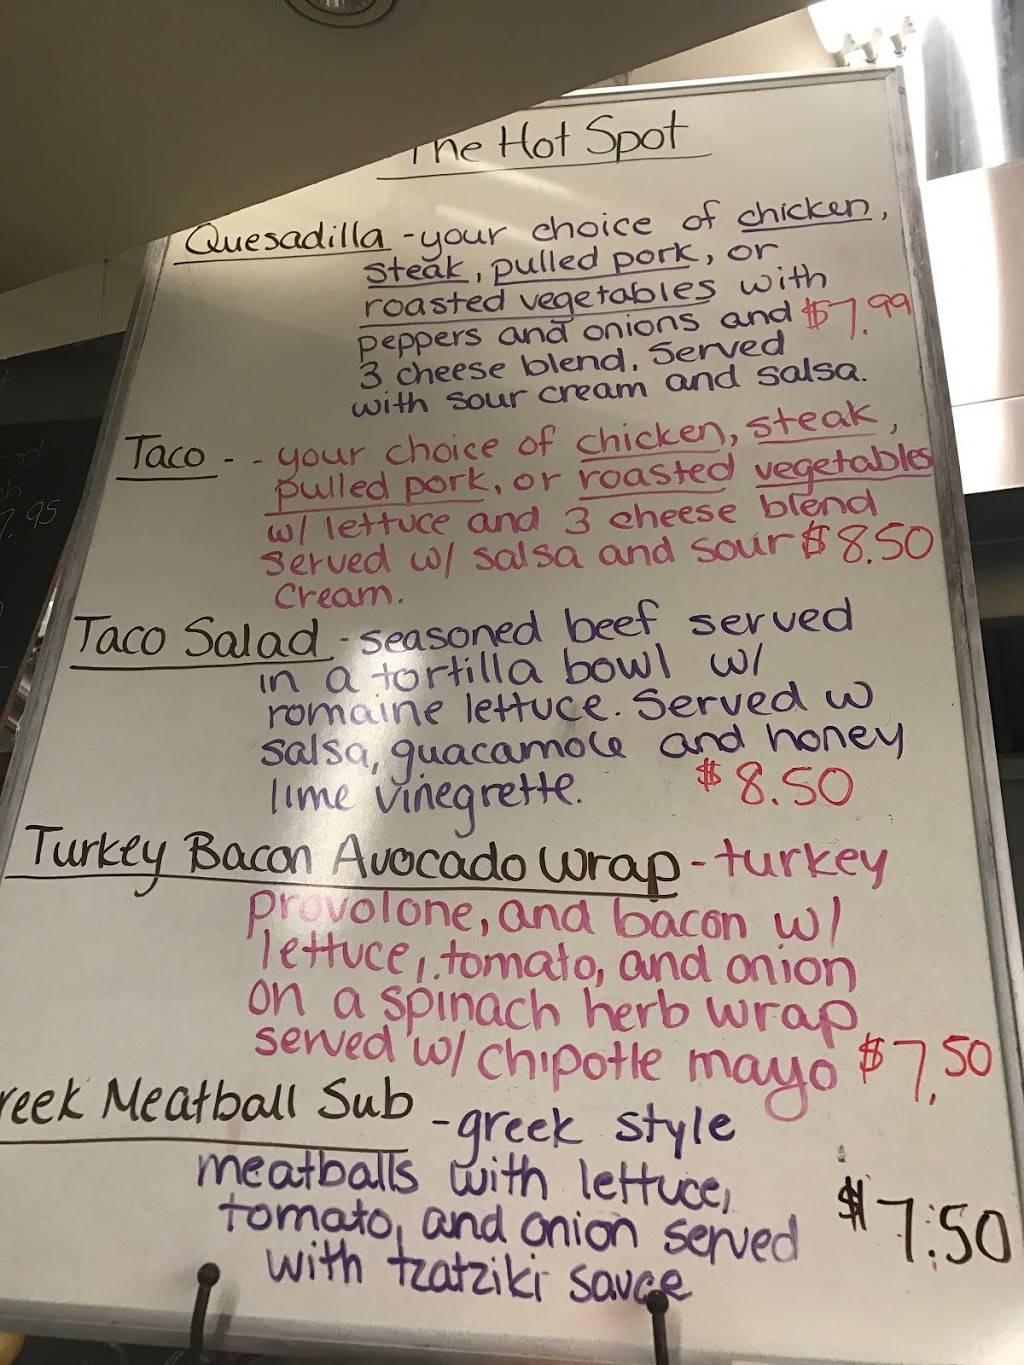 The Hot Spot
Quesadilla - your choice of chicken,
steak, pulled pork, or
roasted vegetables with
peppers and onions and $7.99
3 cheese blend. Served
with sour cream and salsa.
Taco - - your choice of chicken, steak,
pulled pork, or roasted vegetables
w/ lettuce and 3 cheese blend
served w/ salsa and sour $8.50
cream.
Taco Salad - seasoned beef served
in a tortilla bowl w/
romaine lettuce. Served w
salsa, guacamole and honey
lime vinegrette. $8.50
Turkey Bacon Avocado Wrap - turkey
provolone, and bacon w/
lettuce, tomato, and onion
on a spinach herb wrap
served w/ chipotle mayo $7.50
reek Meatball Sub - greek style
meatballs with lettuce,
tomato, and onion served $7.50
with tzatziki sauce
.95